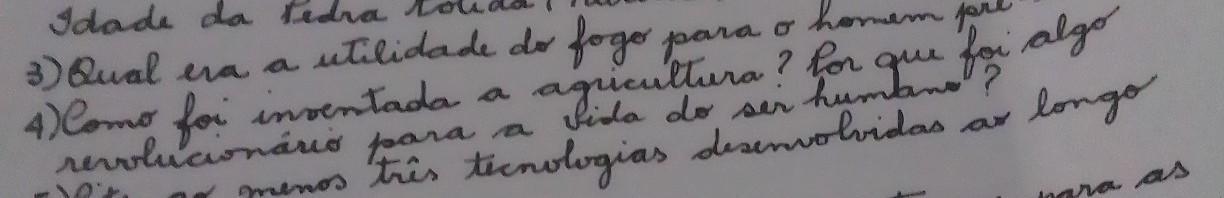 Idade da Pedra
3) Qual era a utilidade do fogo para o homem pré
4) Como foi inventada a agricultura? Por que foi algo
revolucionário para a vida do ser humano?
menos três tecnologias desenvolvidas ao longo
para as